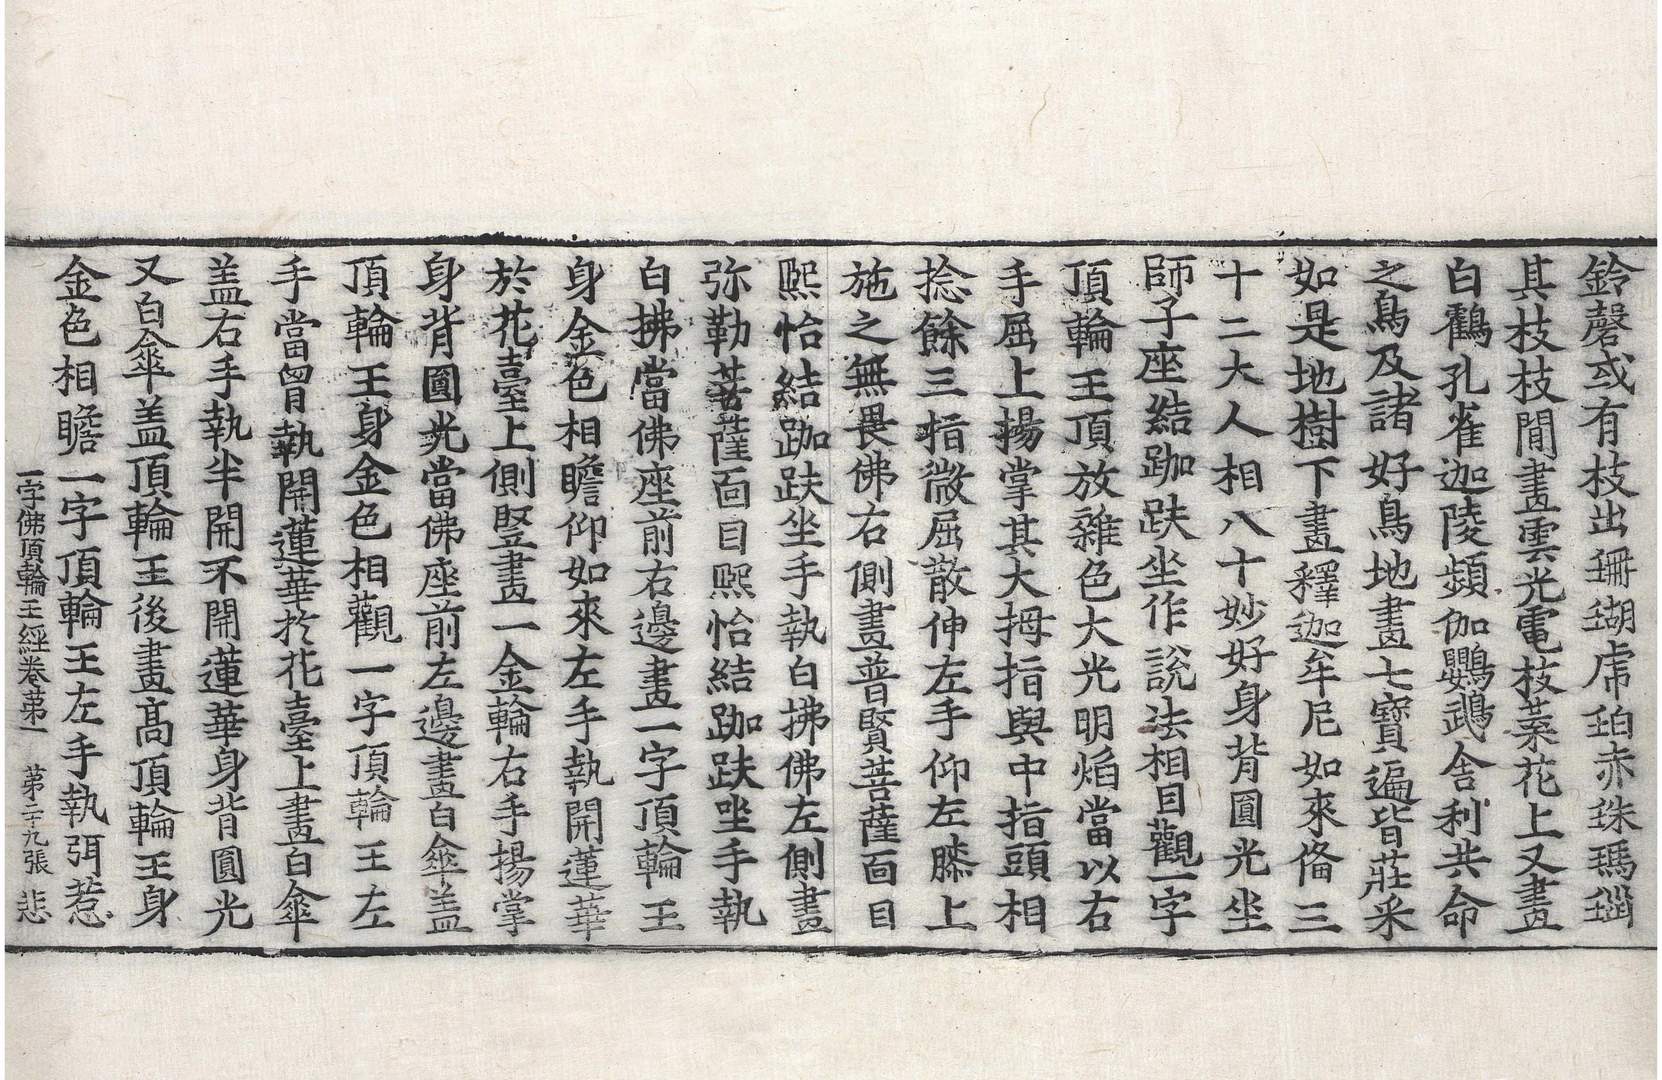 鈴磬或有枝出珊瑚虎珀赤珠瑪瑙
其枝枝閒畫雲光電枝葉花上又畫
白鸖孔雀迦陵頻伽鸚鵡舍利共命
之鳥及諸好鳥地畫七寶遍皆莊采
如是地樹下畫釋迦牟尼如來俻三
十二大人相八十妙好身背圓光坐
師子座結跏趺坐作說法相目觀一字
頂輪王頂放雜色大光明焰當以右
手屈上揚掌其大拇指與中指頭相
捻餘三指微屈散伸左手仰左膝上
施之無畏佛右側畫普賢菩薩面目
熈怡結跏趺坐手執白拂佛左側畫
弥勒菩薩面目熈怡結跏趺坐手執
白拂當佛座前右邊畫一字頂輪王
身金色相瞻仰如來左手執開蓮華
於花臺上側竪畫一金輪右手揚掌
身背圓光當佛座前左邊畫白傘盖
頂輪王身金色相觀一字頂輪王左
手當胷執開蓮華於花臺上畫白傘
盖右手執半開不開蓮華身背圓光
又白傘盖頂輪王後畫髙頂輪王身
金色相瞻一字頂輪王左手執弭惹
一字佛頂輪王經卷苐一　苐二十九張　悲